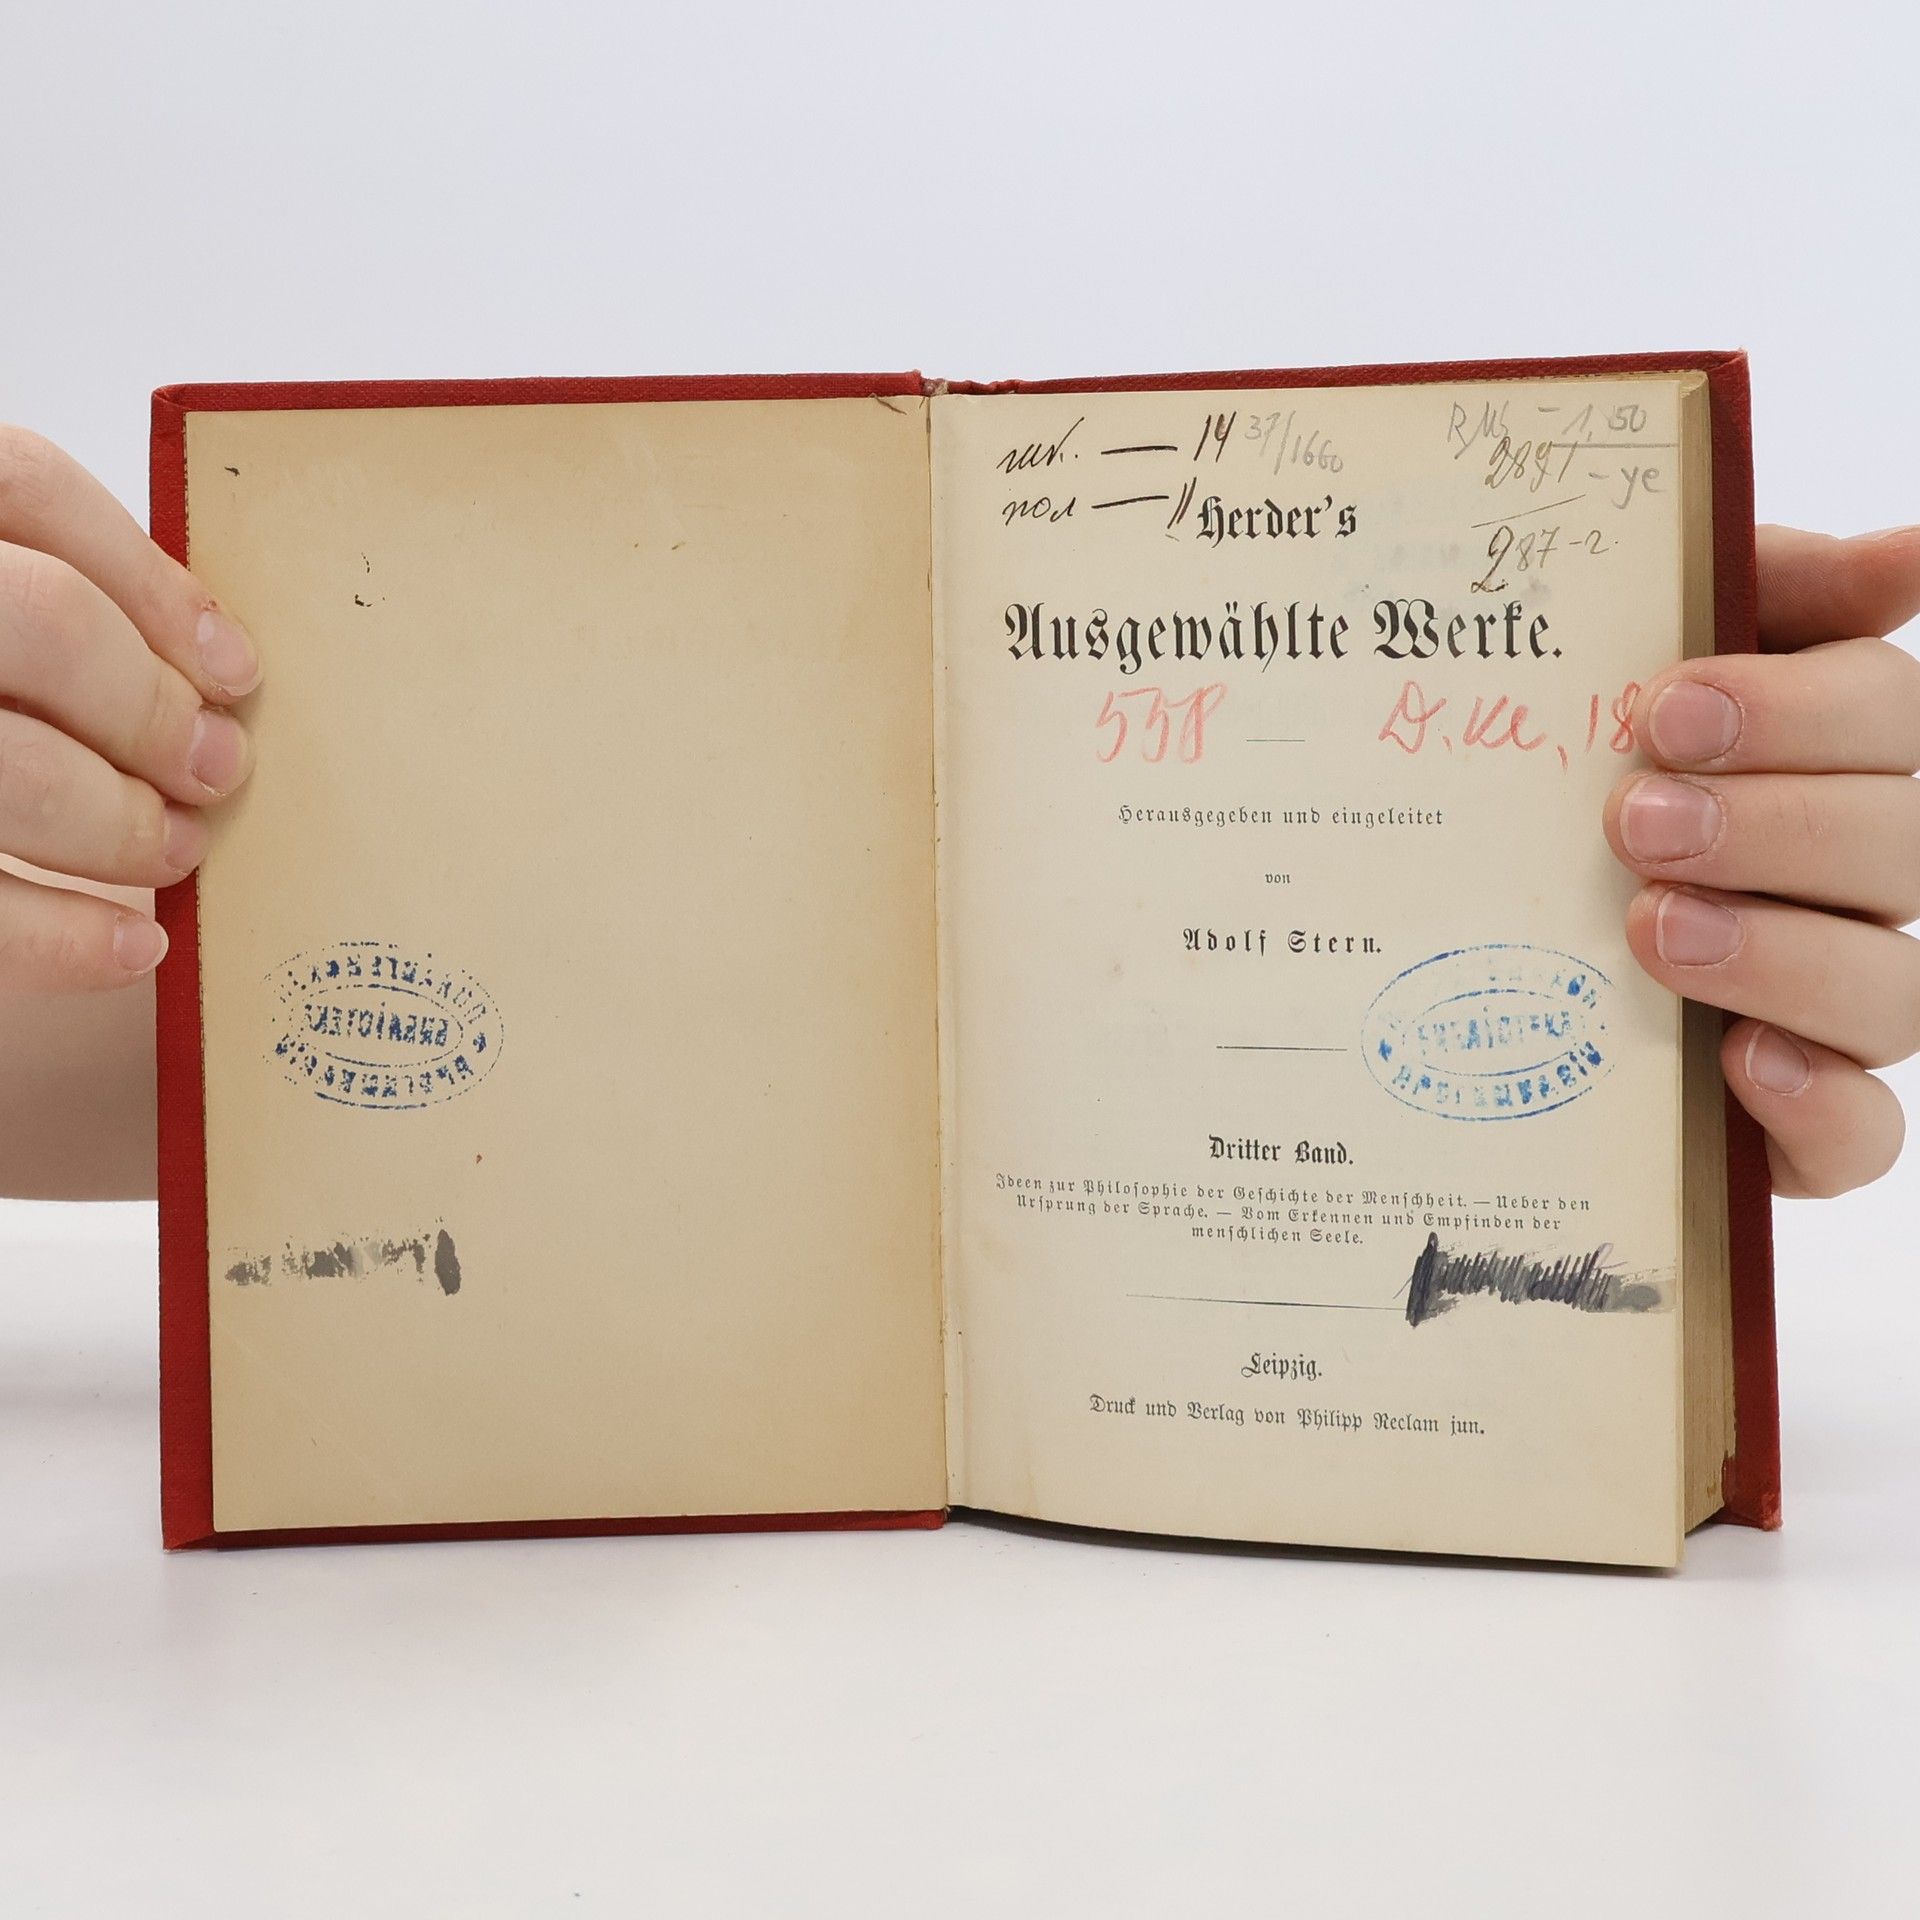 14 37/1660
RM - 1,50
2891 - ye
Herder's
987-2.
Ausgewählte Werke.
558 D. Kl, 18
Herausgegeben und eingeleitet
von
Adolf Stern.
Dritter Band.
Ideen zur Philosophie der Geschichte der Menschheit. — Ueber den
Ursprung der Sprache. — Vom Erkennen und Empfinden der
menschlichen Seele.
Leipzig.
Druck und Verlag von Philipp Reclam jun.